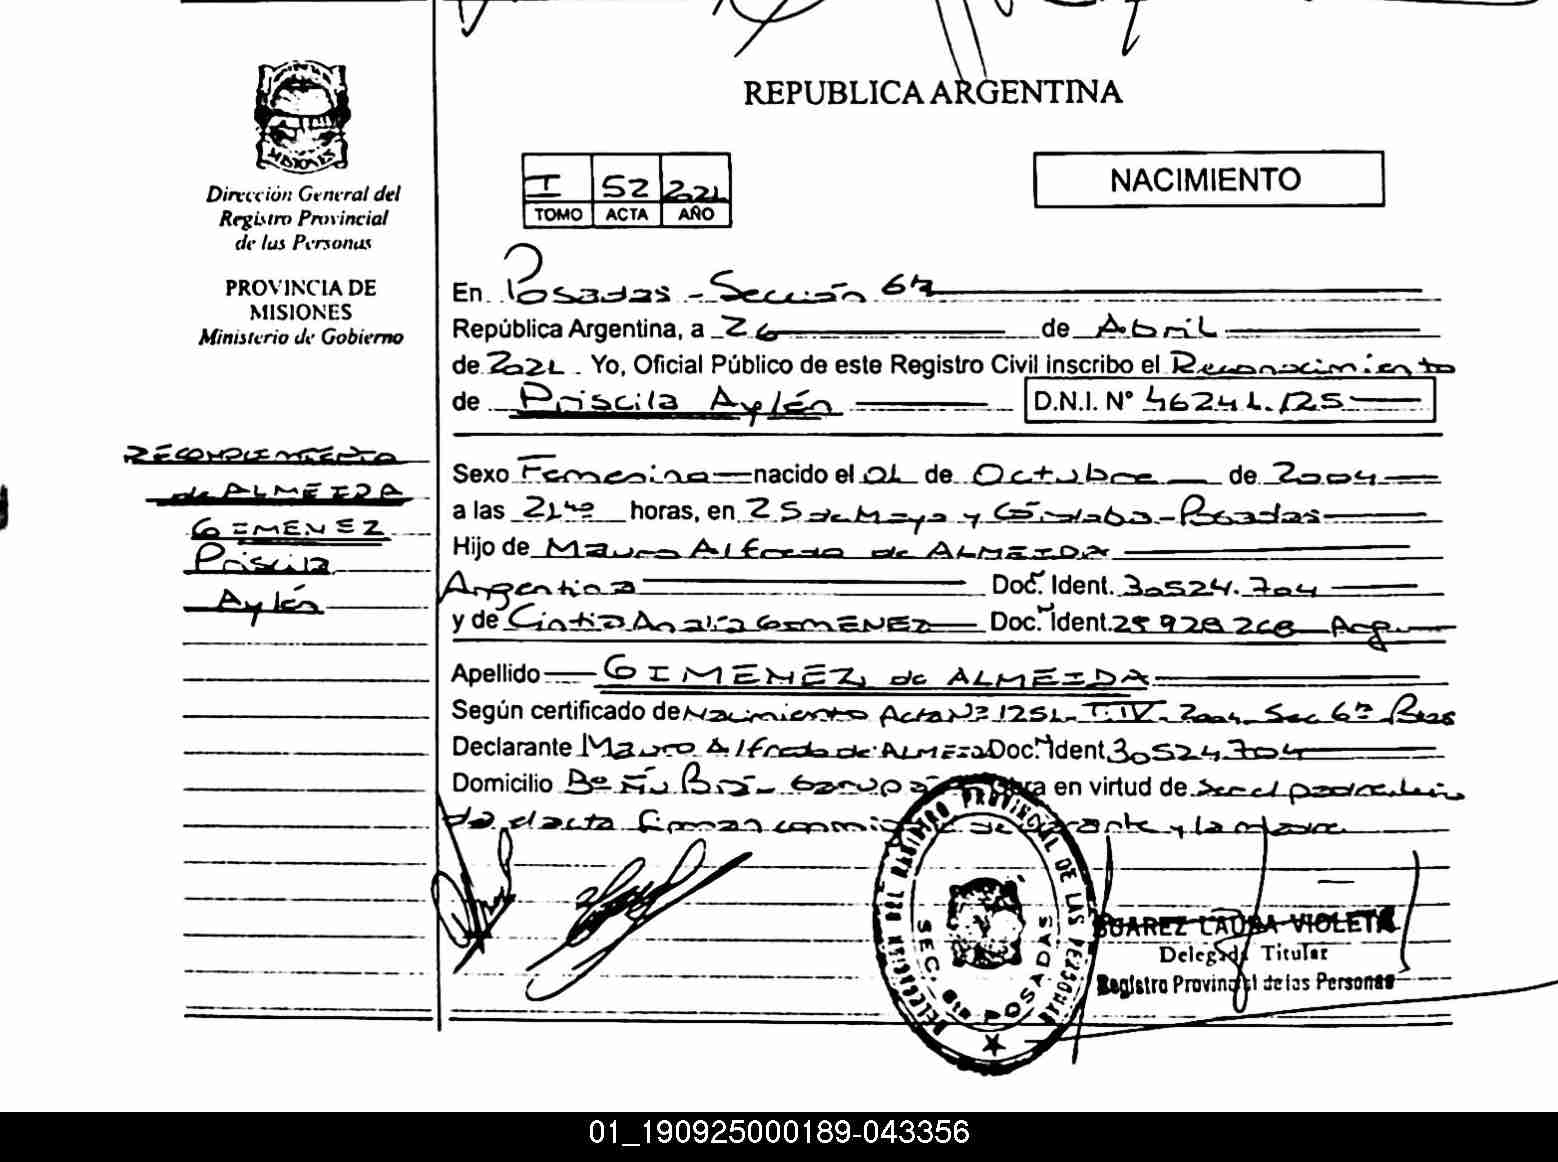 REPUBLICA ARGENTINA
MISIONES
Dirección General del
Registro Provincial
de las Personas
PROVINCIA DE
MISIONES
Ministerio de Gobierno
I 52 2021
TOMO ACTA AÑO
NACIMIENTO
En Posadas - Sección 6ta
República Argentina, a 26 de Abril
de 2021. Yo, Oficial Público de este Registro Civil inscribo el Reconocimiento
de Priscila Aylén D.N.I. N° 46241.125
RECONOCIMIENTO
de ALMEIDA
GIMENEZ
Priscila
Aylén
Sexo Femenino nacido el 01 de Octubre de 2004
a las 21 horas, en 25 de Mayo y Córdoba - Posadas
Hijo de Mauro Alfredo de ALMEIDA
Argentina Doc. Ident. 30524.704
y de Cintia Analía GIMENEZ Doc. Ident. 25928268 Arg
Apellido GIMENEZ, de ALMEIDA
Según certificado de Nacimiento Acta N° 1251 - T. IV - 2004 - Sec 6ta Pdas
Declarante Mauro Alfredo de ALMEIDA Doc. Ident. 30524.704
Domicilio B° Ñu Porá - Garupá Obra en virtud de ser el padre. Leída
el acta firman conmigo el declarante y la madre
DELEGACION DEL REGISTRO PROVINCIAL DE LAS PERSONAS
SEC. 6ta POSADAS
SUAREZ LAURA VIOLETA
Delegada Titular
Registro Provincial de las Personas
01_190925000189-043356